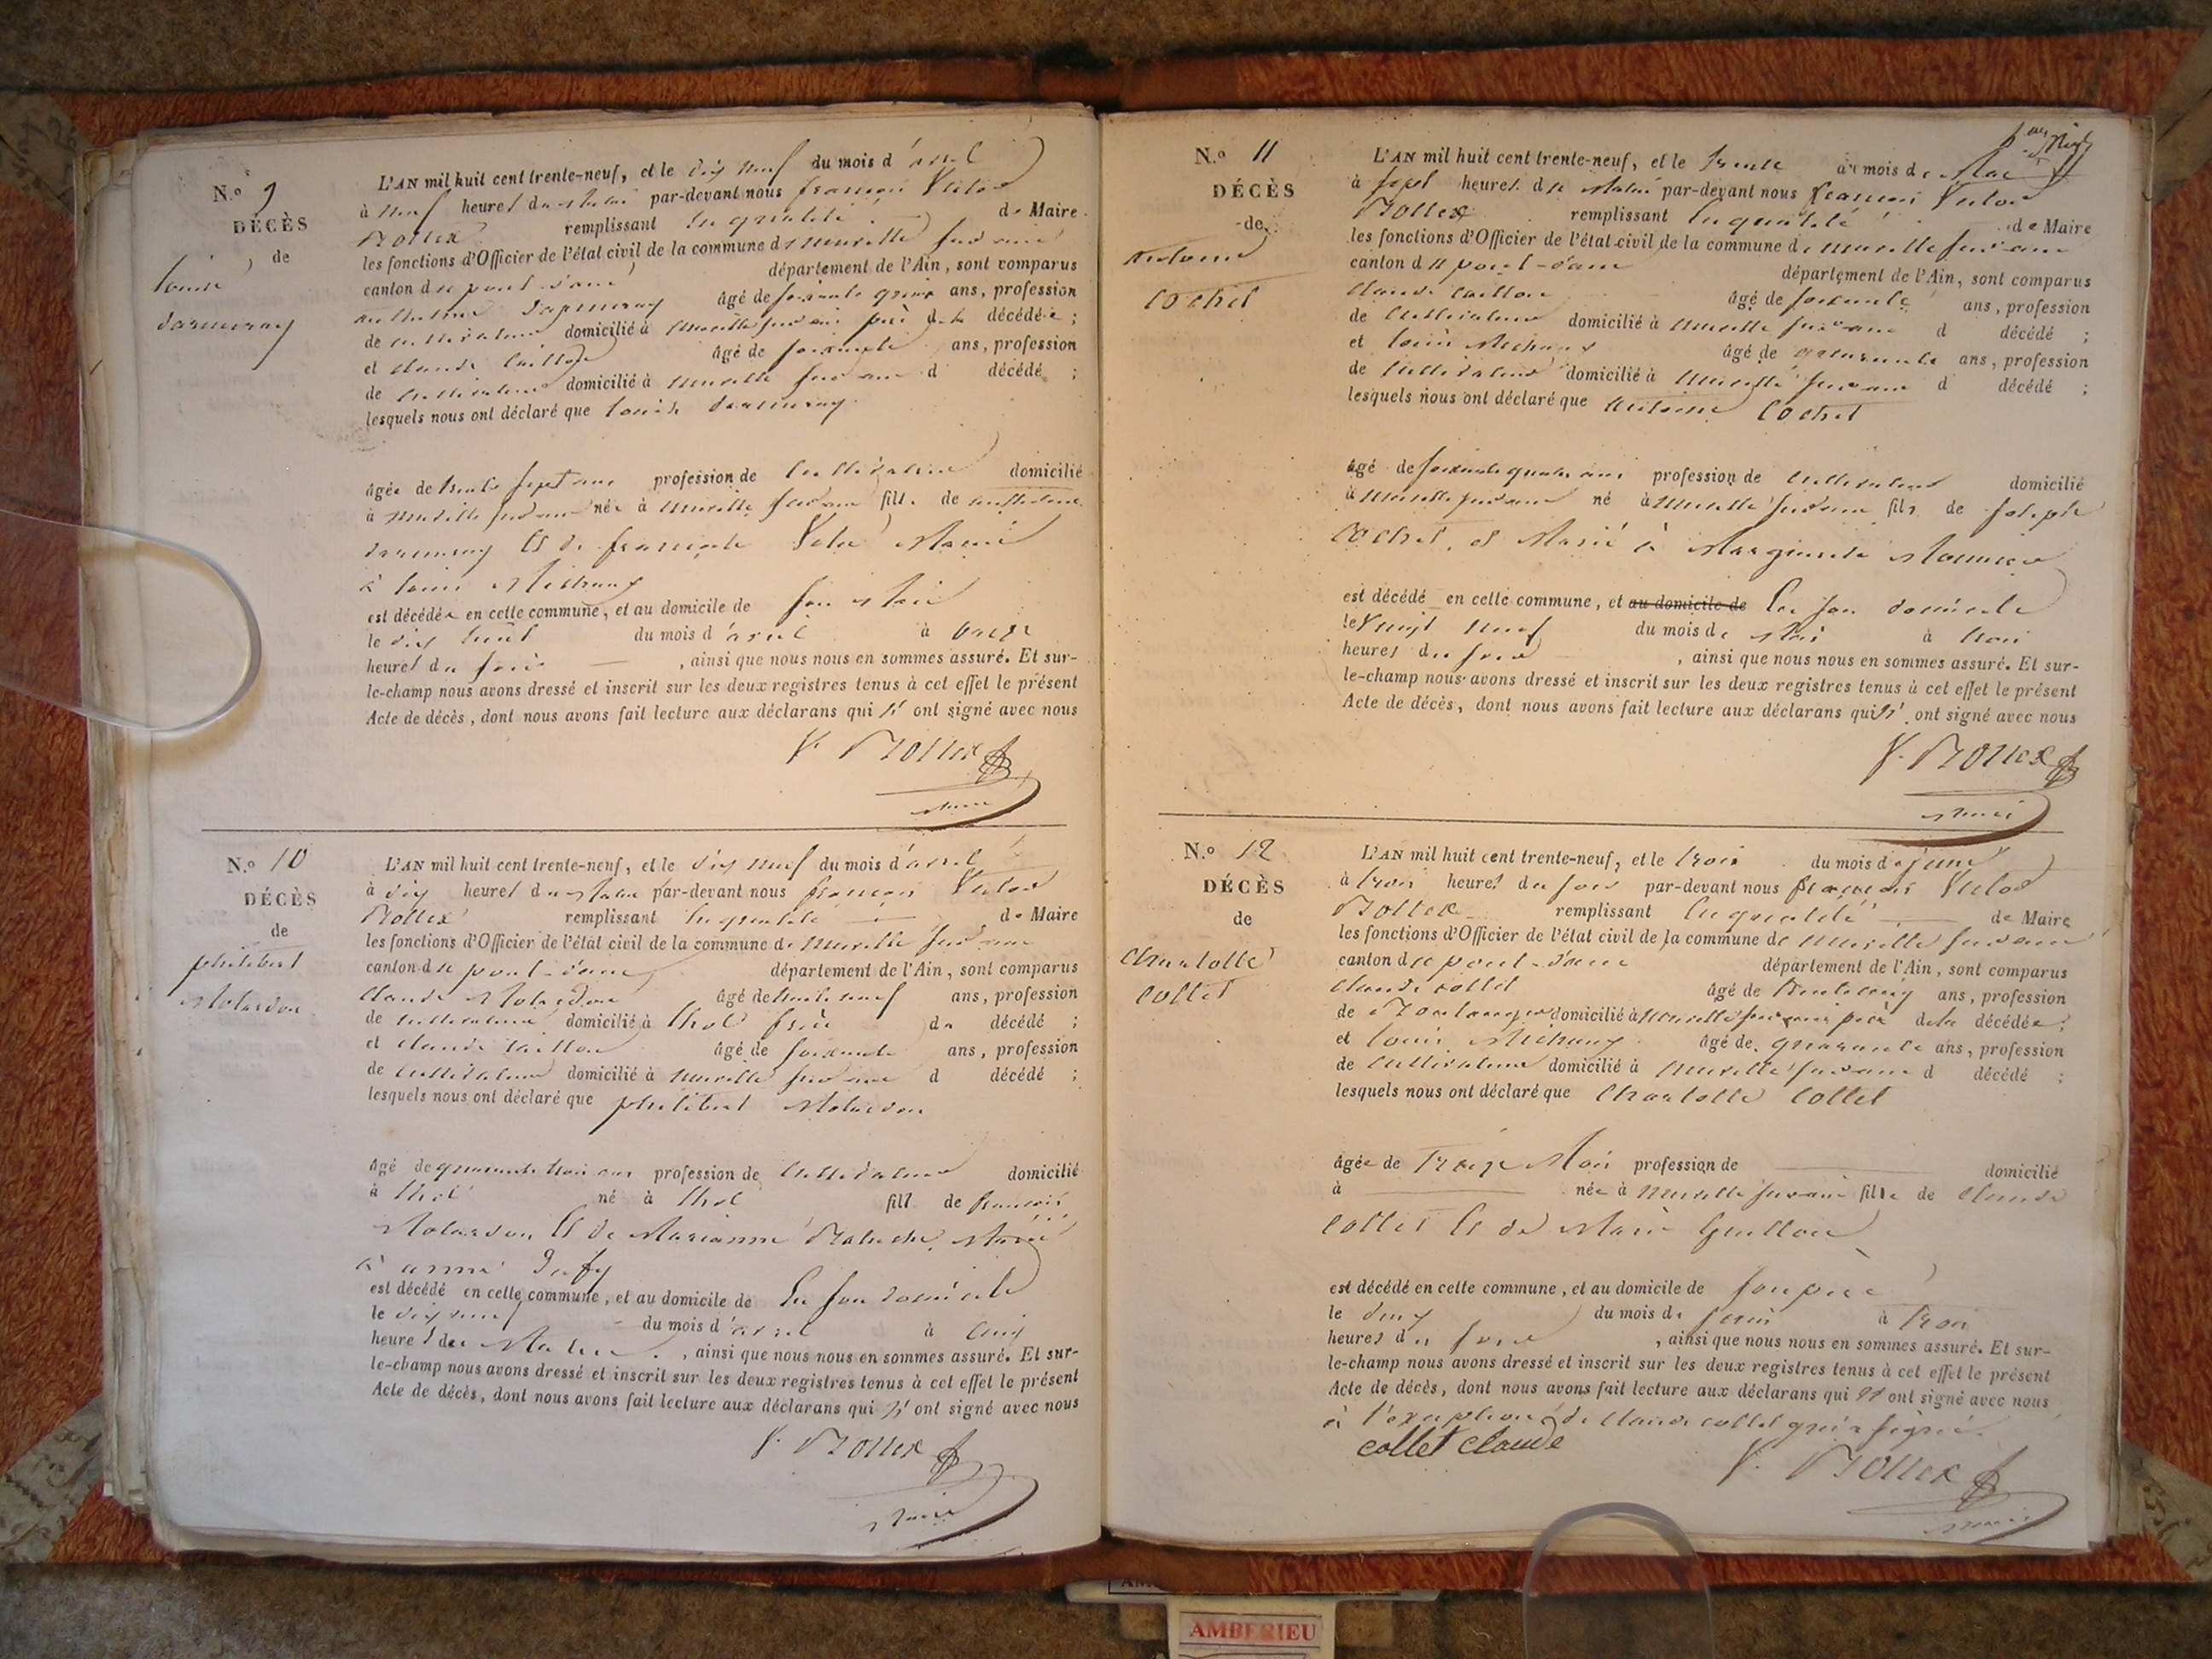 N.o 9
DÉCÈS
de
L'AN mil huit cent trente-neuf, et le dix neuf du mois d'avril
à neuf heures du matin par-devant nous françois Victor
Bollex remplissant en qualité de Maire
les fonctions d'Officier de l'état civil de la commune de neuville sur ain
canton de pont d'ain département de l'Ain, sont comparus
âgé de soixante quinze ans, profession
de cultivateur domicilié à neuville sur ain père de la décédée ;
et claude caillon âgé de soixante ans, profession
de cultivateur domicilié à neuville sur ain d décédé ;
lesquels nous ont déclaré que
âgée de trente sept ans profession de cultivateur domicilié
à neuville sur ain née à neuville sur ain fille de
et de françoise Marié
à louis Michaux
est décédée en cette commune, et au domicile de son Mari
le dix huit du mois d'avril à onze
heures du soir, ainsi que nous nous en sommes assuré. Et sur-
le-champ nous avons dressé et inscrit sur les deux registres tenus à cet effet le présent
Acte de décès, dont nous avons fait lecture aux déclarans qui n'ont signé avec nous
V. Bollex
maire
N.o 10
DÉCÈS
de
philibert
Molardon
L'AN mil huit cent trente-neuf, et le dix neuf du mois d'avril
à dix heures du matin par-devant nous françois Victor
Bollex remplissant en qualité de Maire
les fonctions d'Officier de l'état civil de la commune de neuville sur ain
canton de pont-d'ain département de l'Ain, sont comparus
Claude Molardon âgé de trente neuf ans, profession
de cultivateur domicilié à thol frère du décédé ;
et claude caillon âgé de soixante ans, profession
de cultivateur domicilié à neuville sur ain d décédé ;
lesquels nous ont déclaré que philibert Molardon
âgé de quarante trois ans profession de cultivateur domicilié
à thol né à thol fils de françois
Molardon et de Marianne Marié
à
est décédé en cette commune, et au domicile de en son domicile
le dix neuf du mois d'avril à cinq
heures du Matin, ainsi que nous nous en sommes assuré. Et sur-
le-champ nous avons dressé et inscrit sur les deux registres tenus à cet effet le présent
Acte de décès, dont nous avons fait lecture aux déclarans qui n'ont signé avec nous
V. Bollex
maire
N.o 11
DÉCÈS
de
antoine
Cochet
L'AN mil huit cent trente-neuf, et le trente du mois de Mai
à sept heures du Matin par-devant nous françois Victor
Bollex remplissant en qualité de Maire
les fonctions d'Officier de l'état civil de la commune de neuville sur ain
canton de pont-d'ain département de l'Ain, sont comparus
claude caillon âgé de soixante ans, profession
de cultivateur domicilié à neuville sur ain d décédé ;
et louis Michaux âgé de quarante ans, profession
de cultivateur domicilié à neuville sur ain d décédé ;
lesquels nous ont déclaré que antoine Cochet
âgé de soixante quatre ans profession de cultivateur domicilié
à neuville sur ain né à neuville sur ain fils de joseph
Cochet, et Marié à Marguerite
est décédé en cette commune, et au domicile de en son domicile
le vingt neuf du mois de Mai à trois
heures du soir, ainsi que nous nous en sommes assuré. Et sur-
le-champ nous avons dressé et inscrit sur les deux registres tenus à cet effet le présent
Acte de décès, dont nous avons fait lecture aux déclarans qui n'ont signé avec nous
V. Bollex
maire
N.o 12
DÉCÈS
de
Charlotte
Collet
L'AN mil huit cent trente-neuf, et le trois du mois de juin
à trois heures du soir par-devant nous françois Victor
Bollex remplissant en qualité de Maire
les fonctions d'Officier de l'état civil de la commune de neuville sur ain
canton de pont-d'ain département de l'Ain, sont comparus
claude collet âgé de trente cinq ans, profession
de Boulanger domicilié à neuville sur ain père de la décédée ;
et louis Michaux âgé de quarante ans, profession
de cultivateur domicilié à neuville sur ain d décédé ;
lesquels nous ont déclaré que Charlotte Collet
âgée de treize Mois profession de domicilié
à née à neuville sur ain fille de claude
collet et de Marie Guillon
est décédé en cette commune, et au domicile de son père
le deux du mois de juin à trois
heures du soir, ainsi que nous nous en sommes assuré. Et sur-
le-champ nous avons dressé et inscrit sur les deux registres tenus à cet effet le présent
Acte de décès, dont nous avons fait lecture aux déclarans qui n'ont signé avec nous
à l'exception de claude collet qui a signé.
collet claude
V. Bollex
maire
AMBERIEU